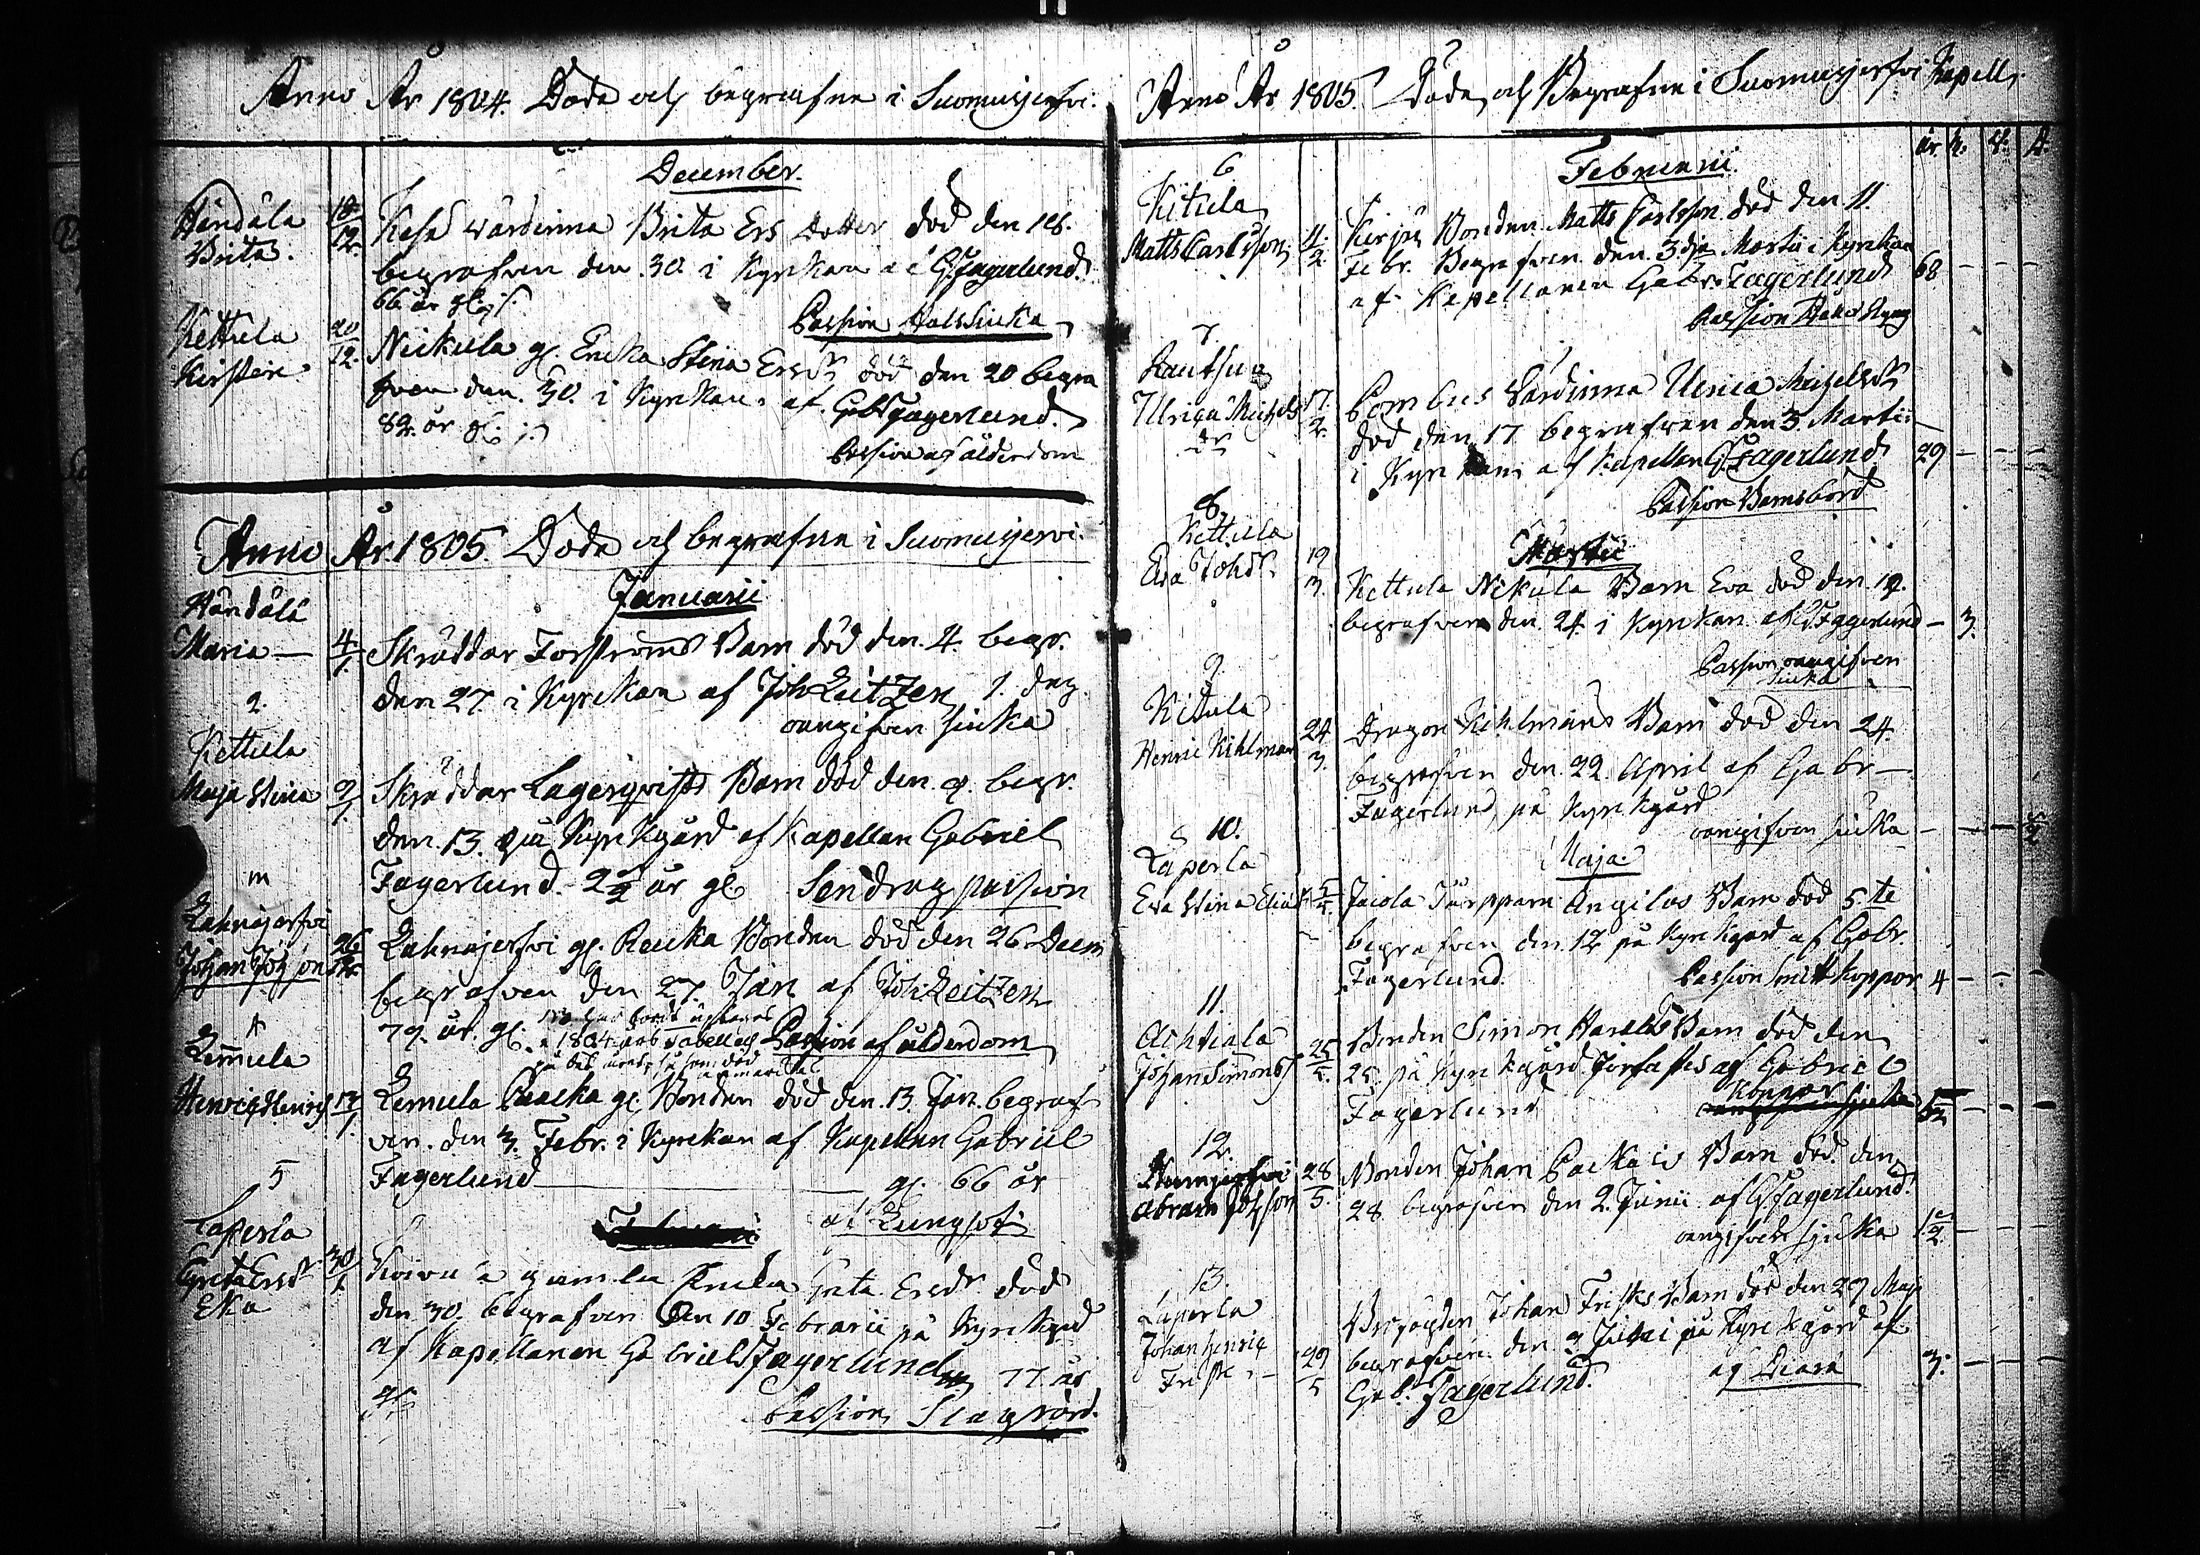 Anno År 1804. Döde och begrafne i Suomusjerfvi.
December.
Händälä
Brita.
18/12.
Wärdinna Brita Ers Dotter död den 18.
begrafven den 30. i Kyrkan af G. Fagerlund
66 år gl.
Passion Halssiuka
Kettula
Kirstin
20/12.
Nickula gl. Enka Stina Ersdr död den 20 begra
fven den 30. i Kyrkan af Gab Fagerlund.
82. år gl.
Passion af ålderdom
Anno År 1805. Döde och begrafne i Suomusjervi.
Januarii
Händälä
Maria
4/1.
Skräddar Forströms Barn död den 4. begr.
den 27. i Kyrkan af Joh Zeitzen 1. dag.
oangifven siuka
2.
Kettula
Maja Stina
9/1.
Skräddar Lagerqvists Barn död den 9. begr.
den 13. på Kyrkgård af Kapellan Gabriel
Fagerlund 2 1/2 år gl. Sendrag passion
Lahnajerfvi
Johan Johsson
26/12.
Lahnajerfvi gl. Bonden död den 26 Decem
begrafven den 27. Jan af Joh Zeitzen
79. år. gl.
1804
Passion af ålderdom
4
Lemula
Henric Henrics
13/1
Lemula gl. Bonden död den 13. Jan. begraf
ven. den 3. Febr. i Kyrkan af Kapellan Gabriel
Fagerlund gl. 66 år
af Lungsot
5
Laperla
Greta Ersdr
Eka
30/1
gamla Enka Greta Ersdr död
den 30. begrafven den 10 Februarii på Kyrkgård
af Kapellanen Gabriel Fagerlund 77. år
gl.
Passion Slag
Anno År 1805. Döde och Begrafne i Suomusjerfvi Kapell.
år.
Februarii
6.
Kitula
Matts Carlsson
11/2.
Bonden Matts Carlsson död den 11.
Febr. Begrafven den 3dje Martii i Kyrkan
af Kapellanen Gabr. Fagerlund 68
Passion
7.
Ulriqa Michels
dr
17/2.
Wärdinna Ulrica Michelsdr
död den 17 begrafven den 3. Martii
i Kyrkan af Kapellan G. Fagerlund 29
Passion Barnsbörd
Martii
8.
Kettula
Eva Johdr.
19/3
Kettula Nikula Barn Eva död den 19.
begrafven den 24 i Kyrkan af G. Fagerlund 3.
Passion oangifven
siuka
9.
Kitula
Henric Kihlman
24/3.
Dragon Kihlmans Barn död den 24.
begrafven den 22. April af Gabr
Fagerlund på Kyrkgård
oangifven siuka
Maja.
10.
Laperla
Eva Stina
5/5
Barn död 5te
begrafven den 12 på Kyrkgård af Gabr.
Fagerlund. Passion Smittkoppor 4
11.
Johan Simonss
25/5.
Bonden Simon Barn död den
25. på Kyrkgård af Gabriel
Fagerlund Koppor
12.
Abram Johsson
28/5.
Bonden Johan Barn död. den
28 begrafven den 2. Junii af G. Fagerlund.
oangifven sjuka 1 1/2
13.
Laperla
Johan Henric
Frisk
29/5
Johan Frisks Barn död den 29 Maji
begrafven den på Kyrkgård af
Gab. Fagerlund. 3.